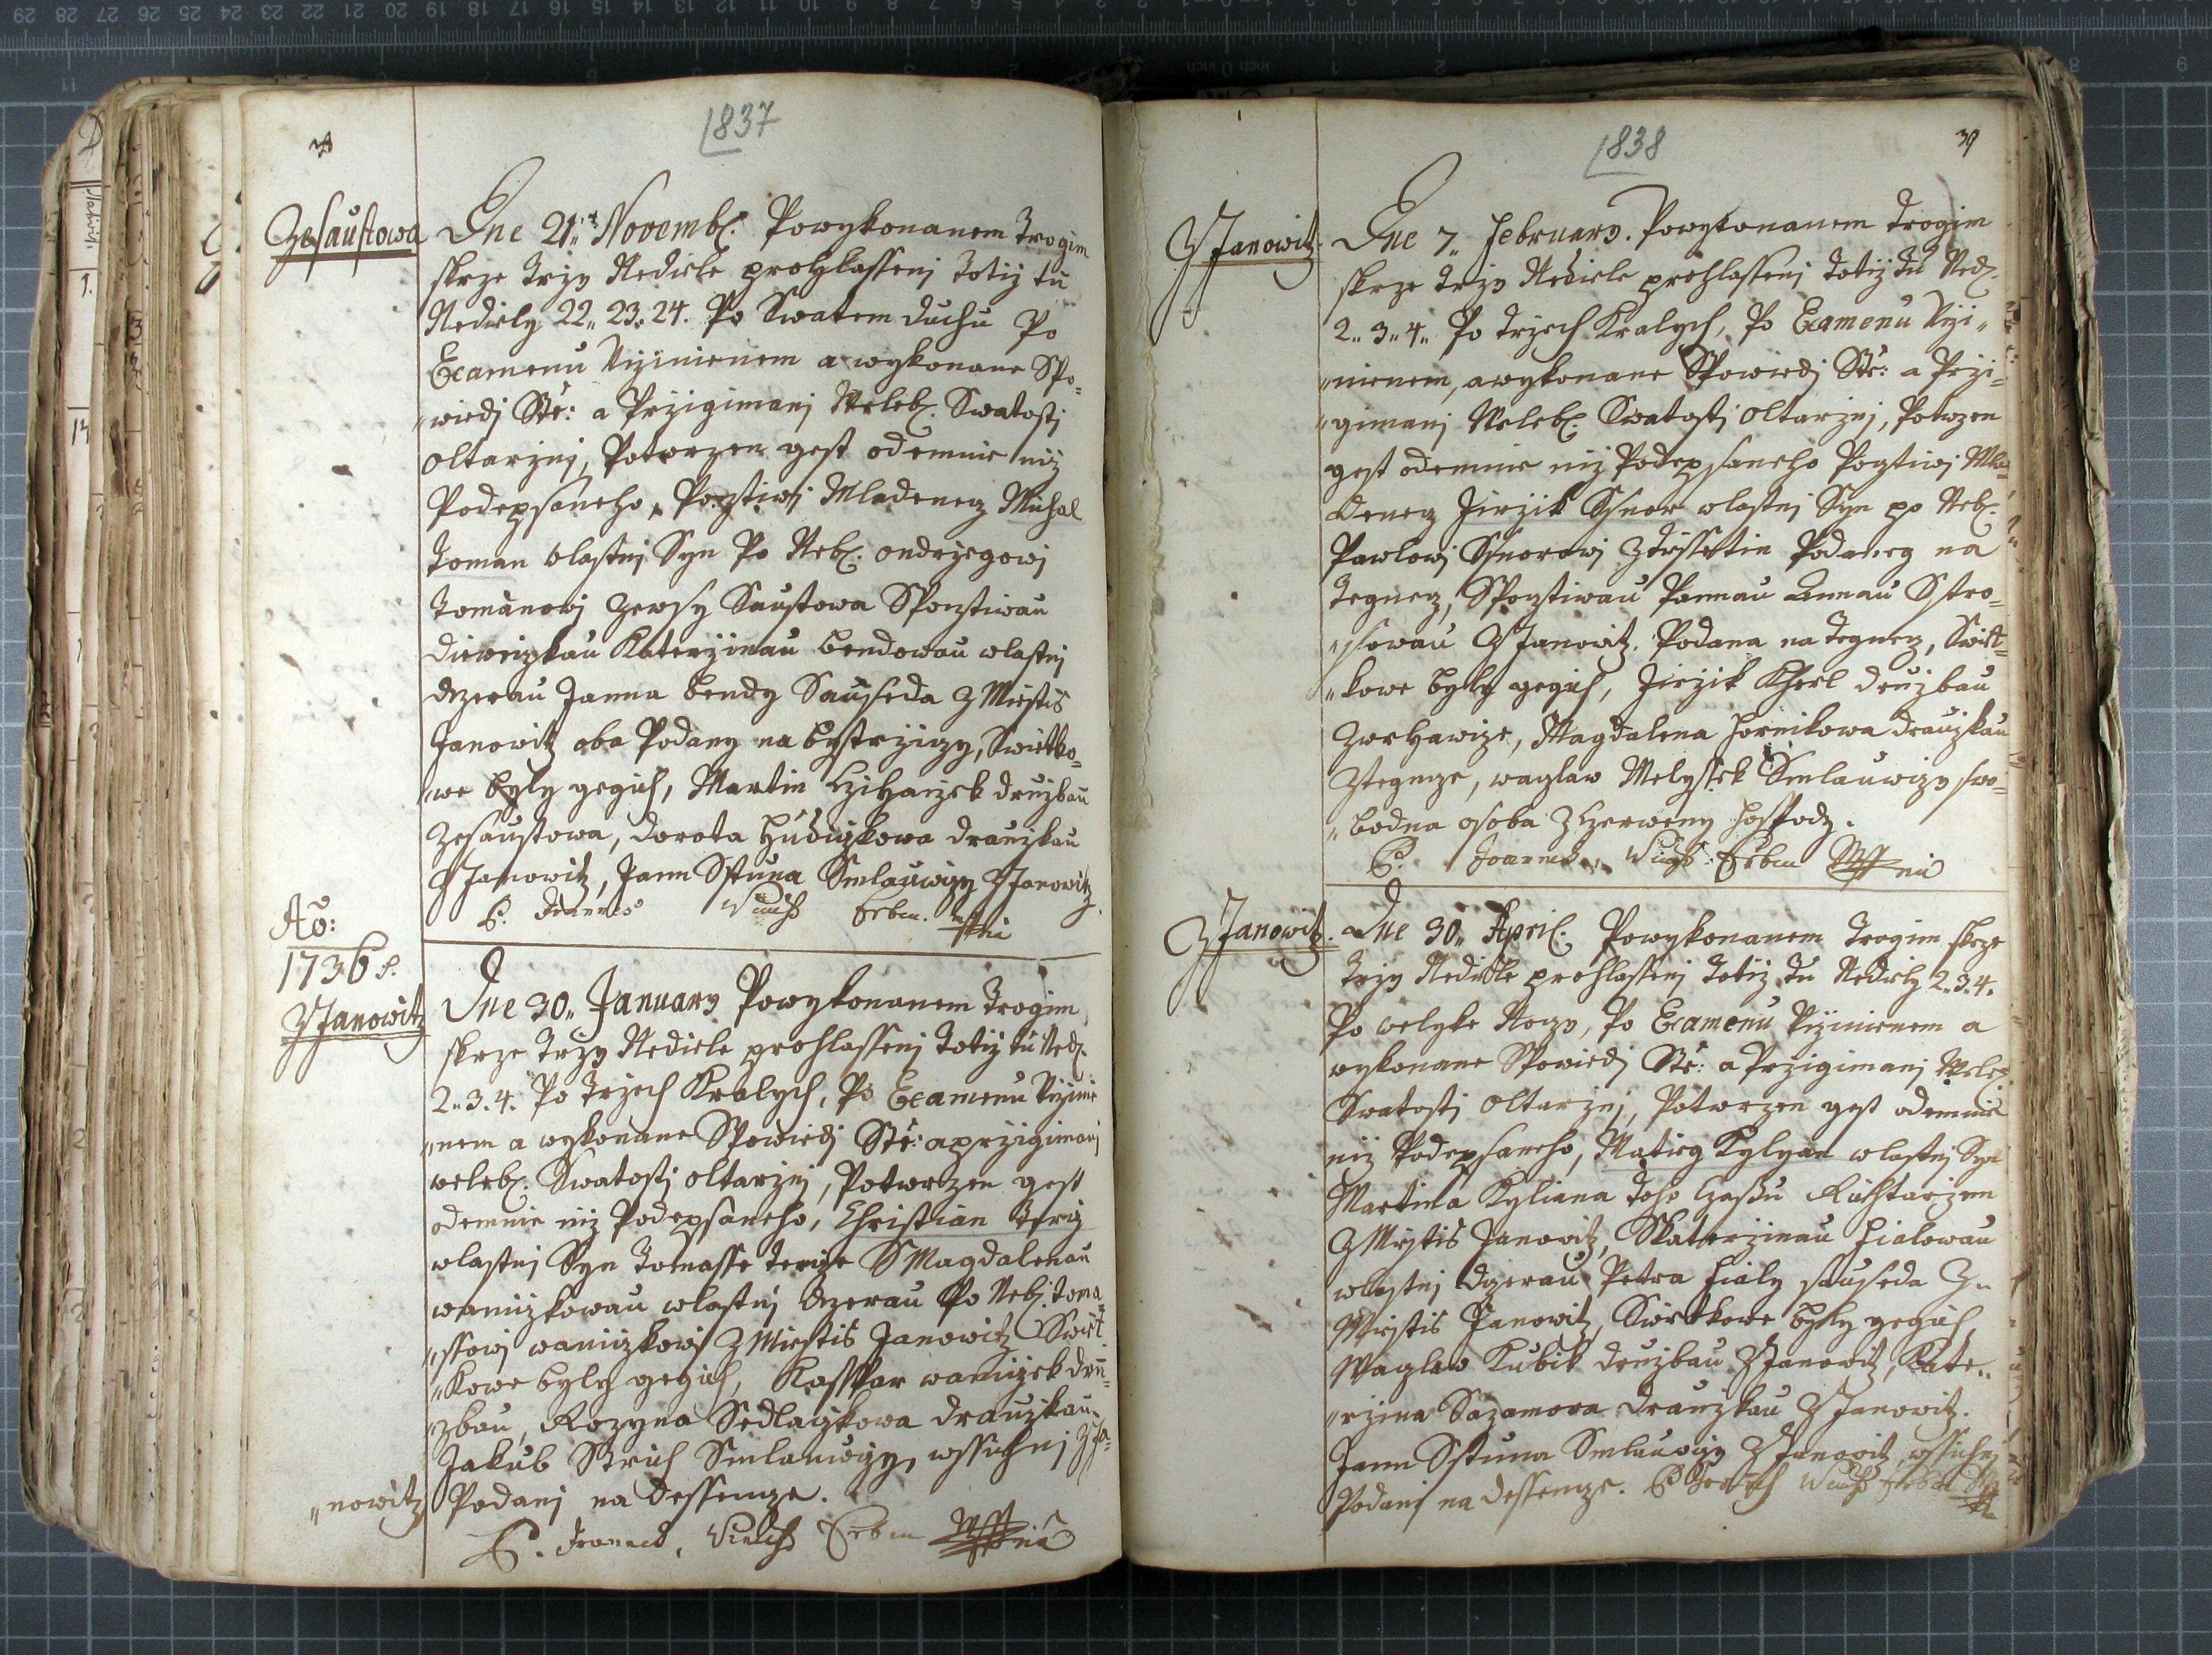 1837
Ze Saustowa
Dne 21. Novemb. Powykonanem Trogim
skrze Trzy Nediele prohlassenj Totiz tu
Nediely 22. 23. 24. Po Swatem Duchu Po
Examenu Uzinienem a wykonane Spo=
"wiedj Ste: a Przigimanj Weleb. Swatostj
Oltarznj, Potwrzen gest odemnie niz
Podepsaneho, Pocztiwj Mladenecz Michal
Toman wlastnj Syn Po Neb. Ondrzegowj
Tomanowj Zewsy Saustowa Spocztiwau
Dieweczkau Katerzinau Bendowau wlastnj
dczerau Janna Bendy Sauseda Z Miestis
Janowitz oba Podany na Bystrziczy, Swietko=
"we byly gegich, Martin druzbau
Zesaustowa, Dorota Hudeczkowa drauzkau
Z Janowitz, Jann Sstuna Smlauwczy Z Janowitz.
P. Joannes Erben
Ao:
1736.
Z Janowitz
Dne 30. January Powykonanem Trogim
skrze Trzy Nediele prohlassenj Totiz tu Ned.
2. 3. 4. Po Trzech Kralych, Po Examenu Uzinie
"nem a wykonane Spowiedj Ste: a przigimanj
weleb. Swatostj oltarznj, Potwrzen gest
odemnie niz Podepsaneho, Christian
wlastnj Syn Tomasse S Magdalenau
waniczkowau wlastnj dczerau Po Neb. Toma=
"ssowj waniczkowj Z Miestis Janowitz Swiet
"kowe byly gegich, Kasspar waniczek dru=
"zbau, Rozyna Sedlaczkowa drauzkau
Jakub Smlauwczy, wssichnj Z Ja=
"nowitz Podanj na Dessenze.
P. Joannes, Erben
1838
39
Z Janowitz
Dne 7. February. Powykonanem Trogim
skrze Trzy Nediele prohlassenj Totiz tu Ned.
2. 3. 4. Po Trzech Kralych, Po Examenu Uzi"
"nienem, a wykonane Spowiedj Ste: a Przi=
"gimanj Weleb. Swatostj Oltarznj, Potwrzen
gest odemnie niz Podepsaneho Pocztiwj Mla=
denecz Jirzik Ssnor wlastnj Syn po Neb.
Pawlowj Ssnorowj Podaneg na
Tegnecz, Spocztiwau Pannau Annau
Z Janowitz. Podana na Tegnecz, Swiet=
"kowe byly gegich, Jirzik druzbau
Magdalena Hornikowa drauzkau
Ztegncze, waczlaw Smlauwczy swo=
"bodna osoba Zczerweny Hosspody.
P. Joannes, Erben
Z Janowitz.
Dne 30. April. Powykonanem Trogim skrze
Trzy Nediele prohlassenj Totiz tu Nediely 2. 3. 4.
Po welyke Noczy, Po Examenu Uzinienem a
wykonane Spowiedj Ste: a Przigimanj Weleb.
Swatostj Oltarznj, Potwrzen gest odemnie
niz Podepsaneho, Matieg Kylyan wlastnj Syn
Martina Kyliana Toho Czassu Richtarzem
Z Miestis Janowitz, Skaterzinau Fialowau
wlastnj dczerau Petra Fialy sauseda Z"
Miestis Janowitz, Swietkowe byly gegich
Waczlaw Kubik druzbau Z Janowitz, Kate"
"rzina Sazamova drauzkau Z Janowitz.
Jann Sstuna Smlauwczy Z Janowitz, wssichnj
Podanj na Dessenze. P Erben